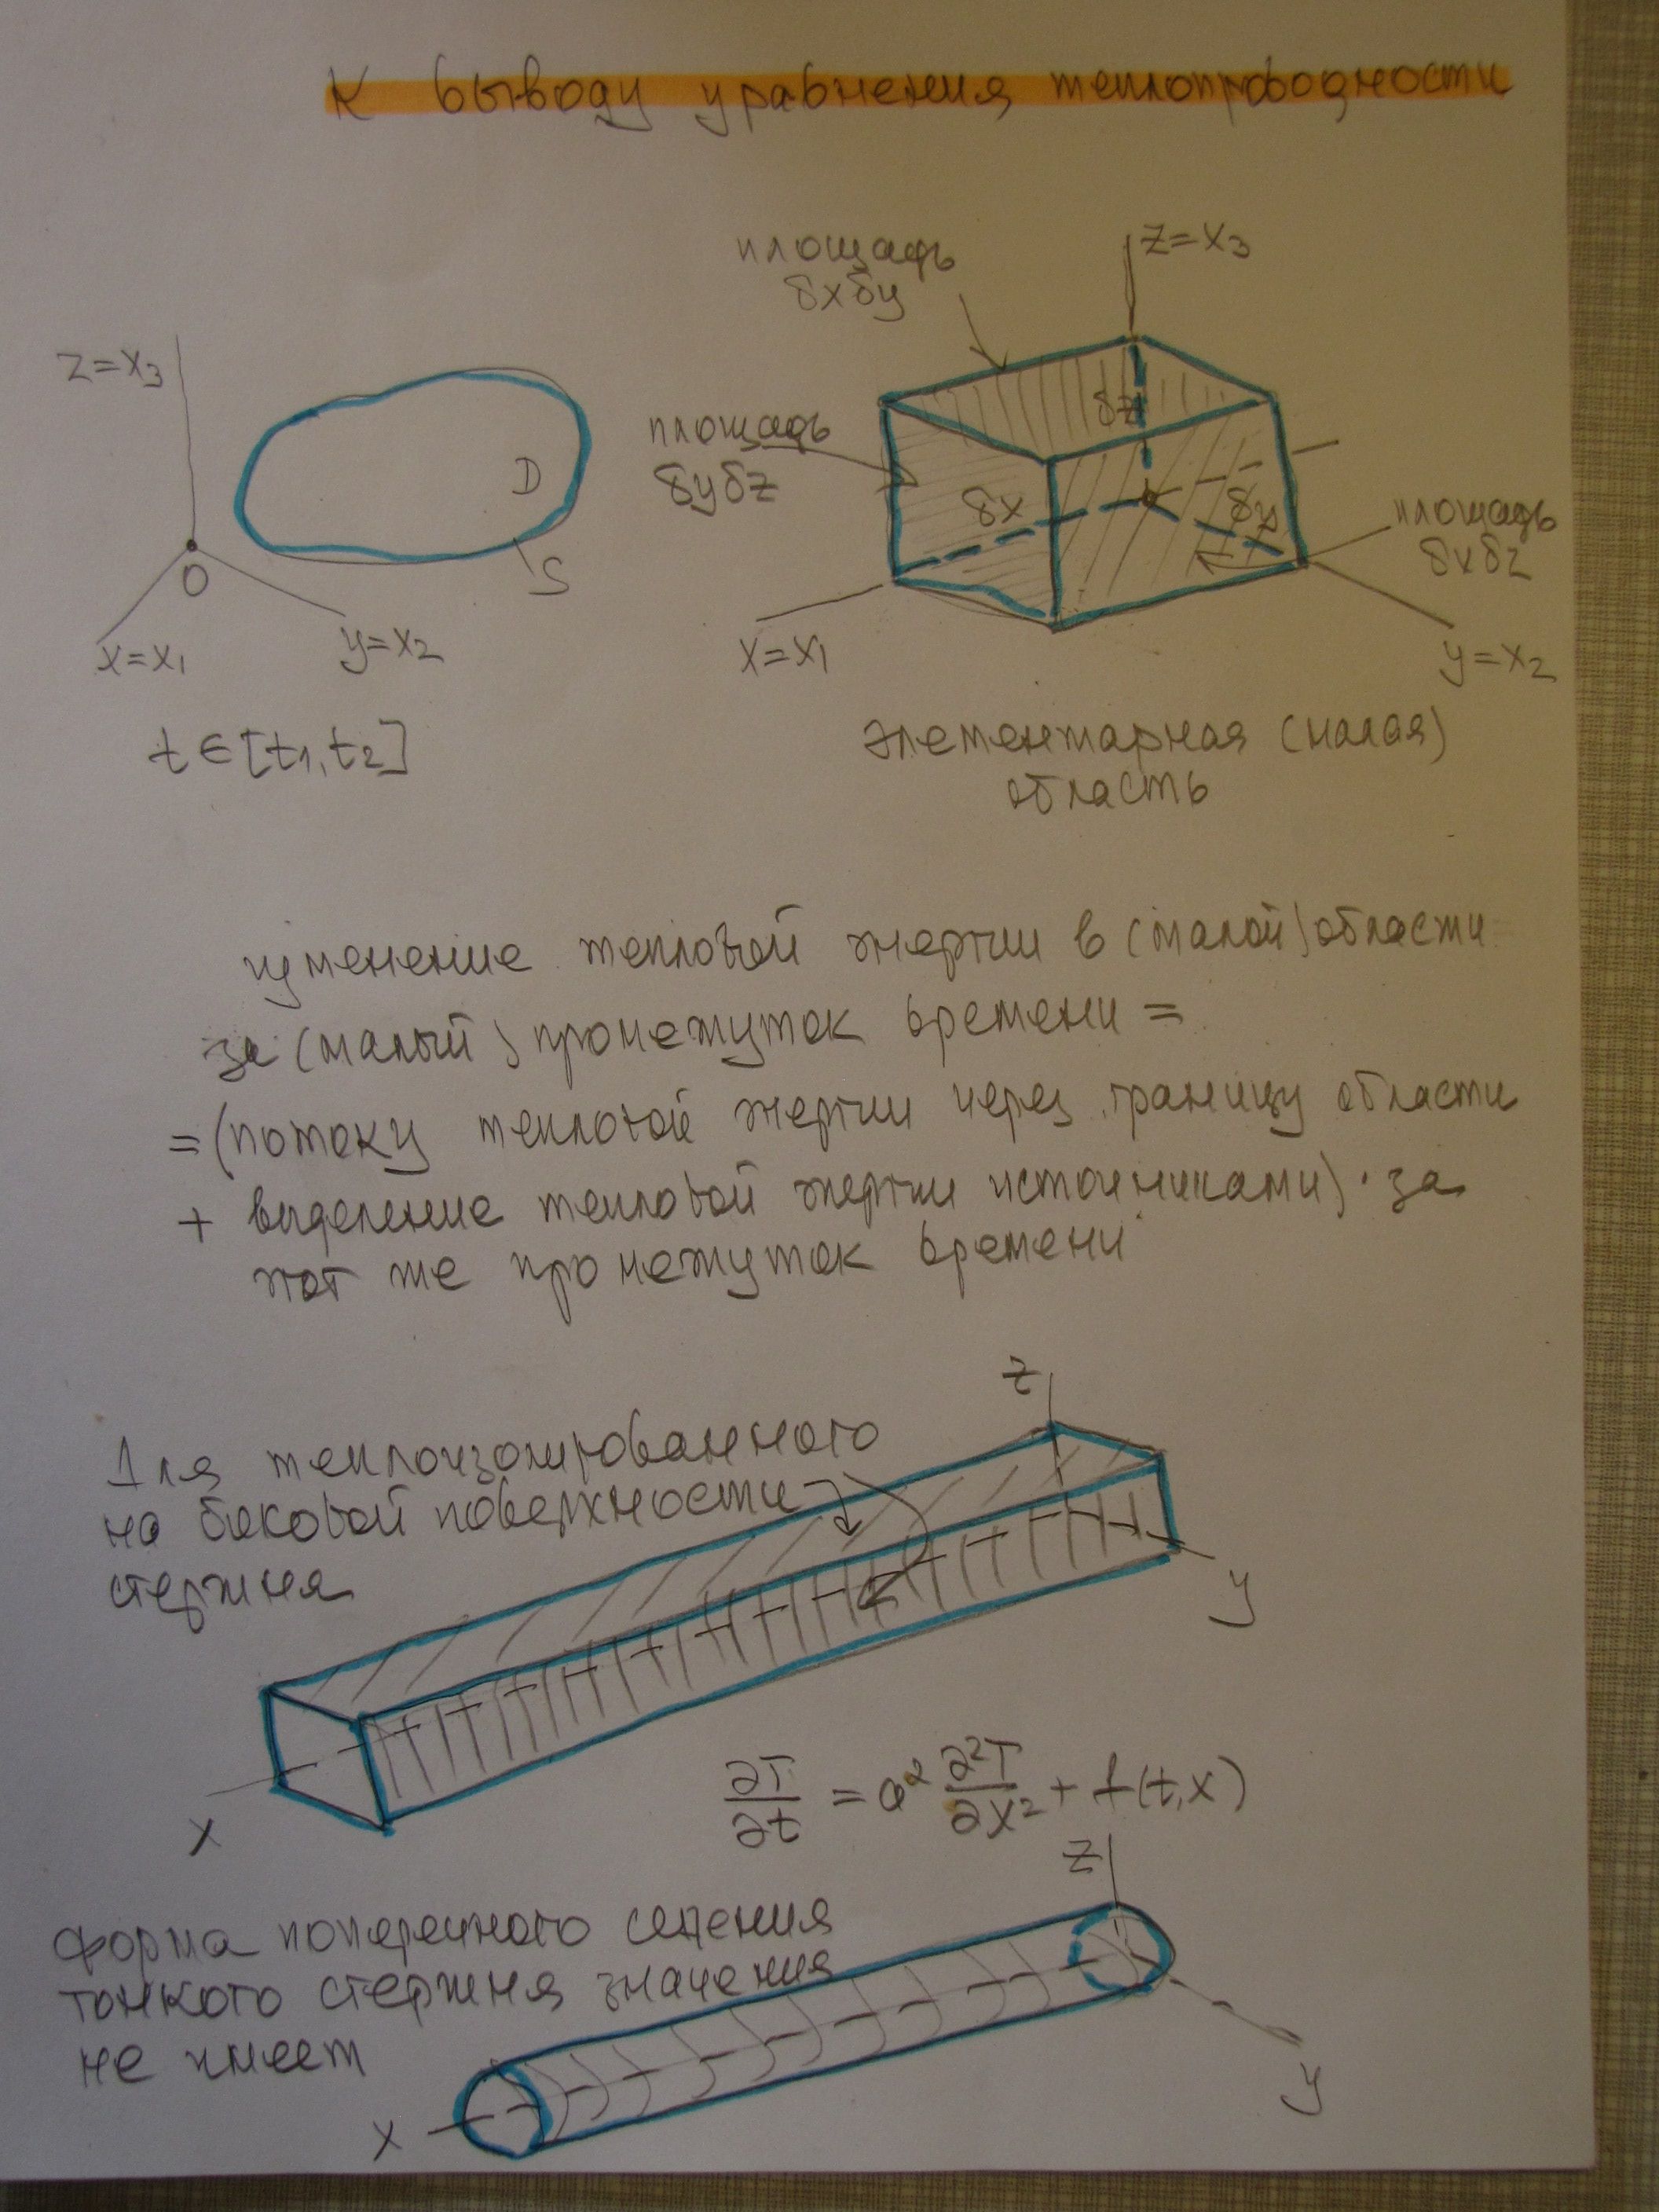 К выводу уравнения теплопроводности
площадь
δxδy
z=x₃
z=x₃
площадь
δyδz
δz
D
δx
δy
площадь
δxδz
O
S
x=x₁
y=x₂
x=x₁
y=x₂
t∈[t₁,t₂]
элементарная (малая)
область
изменение тепловой энергии в (малой) области
за (малый) промежуток времени =
= (потоку тепловой энергии через границу области
+ выделение тепловой энергии источниками) · за
тот же промежуток времени
z
Для теплоизолированного
на боковой поверхности
стержня
y
x
∂T/∂t = a² ∂²T/∂x² + f(t,x)
z
форма поперечного сечения
тонкого стержня значения
не имеет
y
x